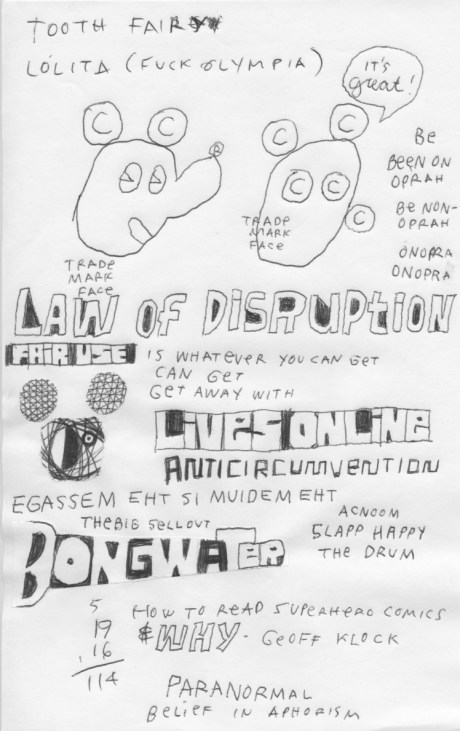 TOOTH FAIRY
LOLITA (FUCK OLYMPIA)
IT'S
great!
C C
R
C C
C C
C
BE
BEEN ON
OPRAH
BE NON-
OPRAH
ONOPRA
ONOPRA
TRADE
MARK
FACE
TRADE
MARK
FACE
LAW OF DISRUPTION
FAIR USE IS WHATEVER YOU CAN GET
CAN GET
GET AWAY WITH
LIVES ONLINE
ANTICIRCUMVENTION
EGASSEM EHT SI MUIDEM EHT
THE BIG SELLOUT
ACNOOM
SLAPP HAPPY
THE DRUM
BONGWATER
5
19
.16
114
HOW TO READ SUPERHERO COMICS
& WHY - GEOFF KLOCK
PARANORMAL
BELIEF IN APHORISM